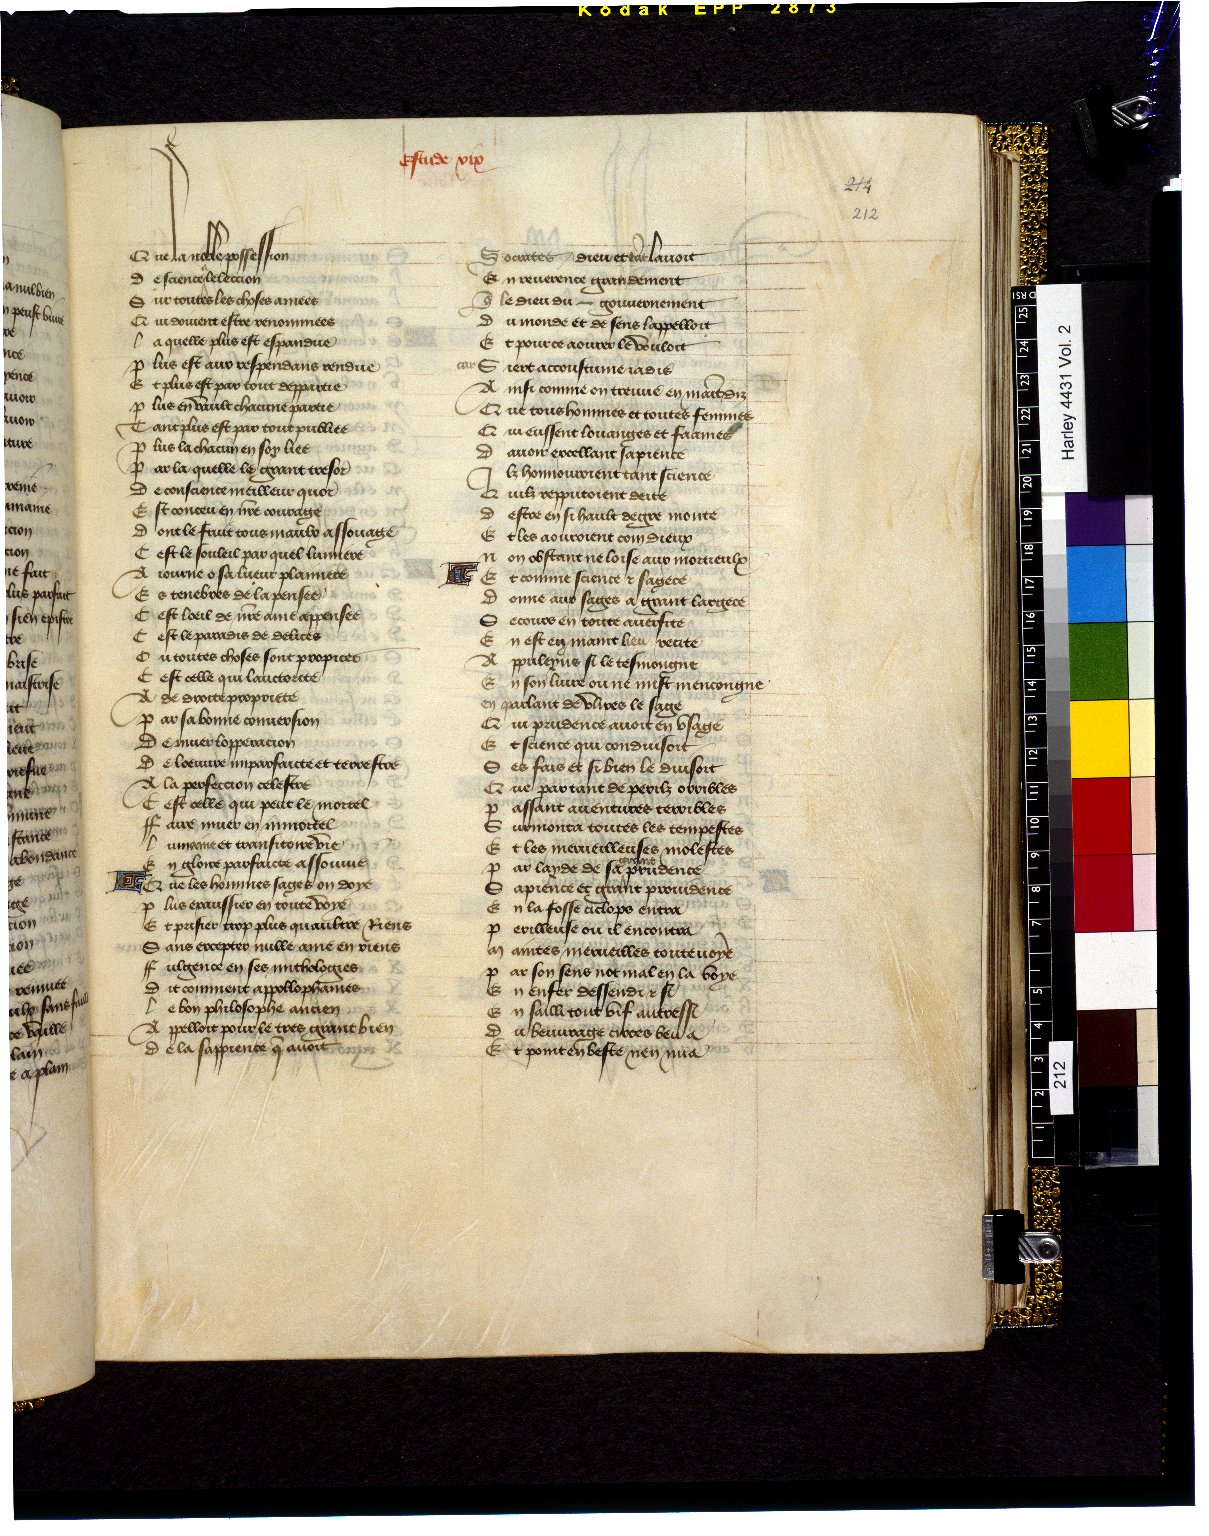 Kodak EPP 2873
Estude xix
214
212
Que la noble possession
De science leleccion
Sur toutes les choses amees
Qui doivent estre renommees
La quelle plus est espandue
Plus est aux respendans rendue
Et plus est par tout departie
Plus en vault chacune partie
Tant plus est par tout publiee
Plus la chacun en soy liee
Par la quelle le grant tresor
De conscience meilleur quor
Est conceu en nre courage
Dont le fruit tous maulx assouage
Cest le souleil par quel lumiere
Aiourne o sa lueur planniere
Es tenebres de la pensee
Cest loeil de nre ame appensee
Cest le paradis de delices
Ou toutes choses sont propices
Cest celle qui lauctorite
A de droite propriete
Par sa bonne conversion
De muer lopperacion
De loeuvre imparfaicte et terrestre
A la perfeccion celestre
Cest celle qui peut le mortel
ffaire muer en inmortel
L umaine et transitoire vie
En gloire parfaicte assouvie
Que les hommes sages on doye
Plus exaussier en toute voye
Et prisier trop plus quaultre Riens
Sans excepter nulle ame en riens
ffulgence en ses mithologies
Dit comment appollophanies
Le bon philosophe ancien
Appelloit pour le tres grant bien
De la sappience q avoit
Socrates dieu et lavoit
En reverence grandement
le dieu du — gouvernement
Du monde et de sens lappelloit
Et pource aourer le vouloit
car Siert accoustume iadis
Ainsi comme on treuve en mains diz
Que tous hommes et toutes femmes
Qui eussent louanges et faames
Davoir excellant sapience
Ilz honnouroient tant science
Quilz repputoient deite
Destre en si hault degre monte
Et les aouroient com dieux
Non obstant ne loise aux mortieulx
Et comme science et sagece
Donne aux sages a grant largece
Secours en toute aversite
En est en maint lieu recite
Appuleyus si le tesmongne
En son livre ou ne mist mencongne
en parlant de Vlixes le sage
Qui prudence avoit en vsage
Et science qui conduisoit
Ses fais et si bien le duisoit
Que par tant de perilz orribles
Passant aventures terribles
Surmonta toutes les tempestes
Et les merveilleuses molestes
Par layde de sa grant prudence
Sapience et grant providence
En la fosse ciclops entra
Perilleuse ou il encontra
Maintes merveilles toutevoye
Par son sens not mal en la voye
En enfer dessendi et si
En sailli tout vif autressi
Du beuvrage circes beu a
Et point en beste nen mua
Harley 4431 Vol. 2
212